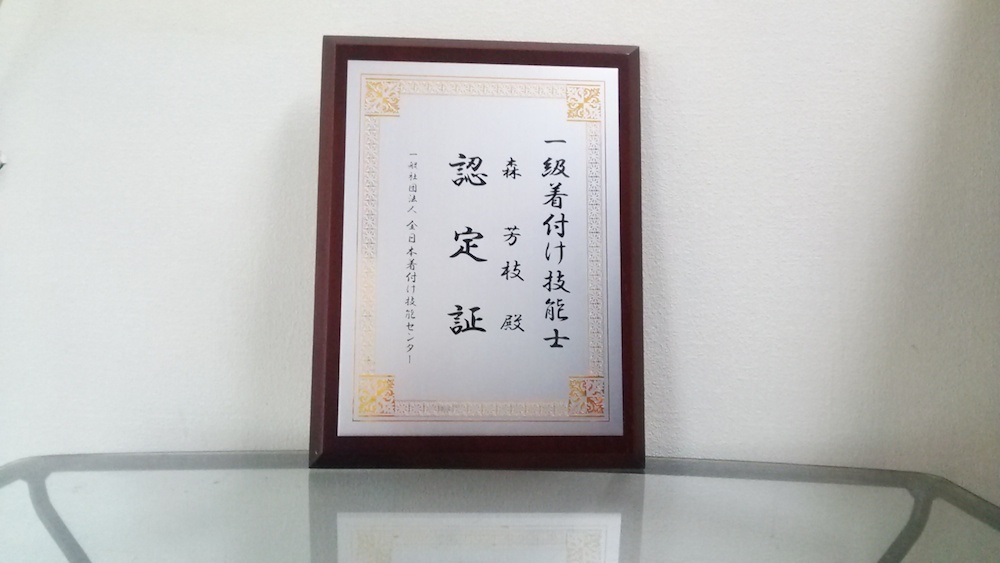 一級着付け技能士
森 芳枝 殿
認定証
一般社団法人 全日本着付け技能センター